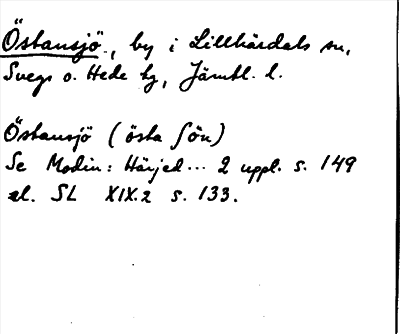 Östansjö, by i Lillhärdals sn,
Svegs o. Hede tg, Jämtl. l.
Östansjö (östa ſön)
Se Modin: Härjed... 2 uppl. s. 149
el. SL XIX.2 s. 133.